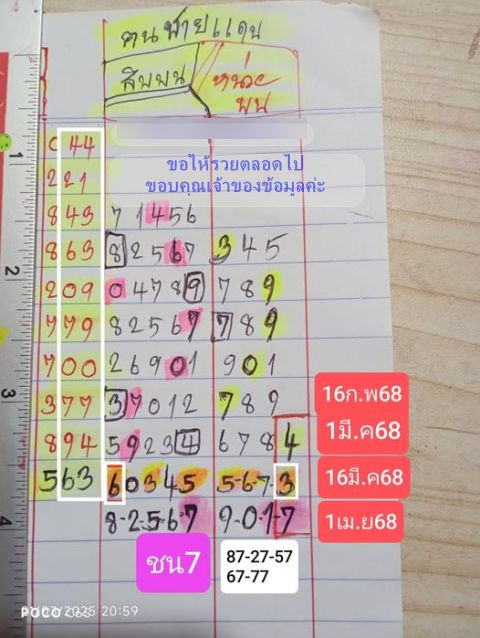 คนชายแดน
สิบบน
หน่วยบน
ขอให้รวยตลอดไป
ขอบคุณเจ้าของข้อมูลค่ะ
44
221
843 71456
863 82567 345
209 04789 789
779 82567 789
700 26901 901
377 37012 789
16ก.พ68
894 59234 678 4
1มี.ค68
563 60345 5-6-7-3
16มี.ค68
8-2-5-6-7 9-0-1-7
1เม.ย68
ชน7
87-27-57
67-77
1
2
3
4